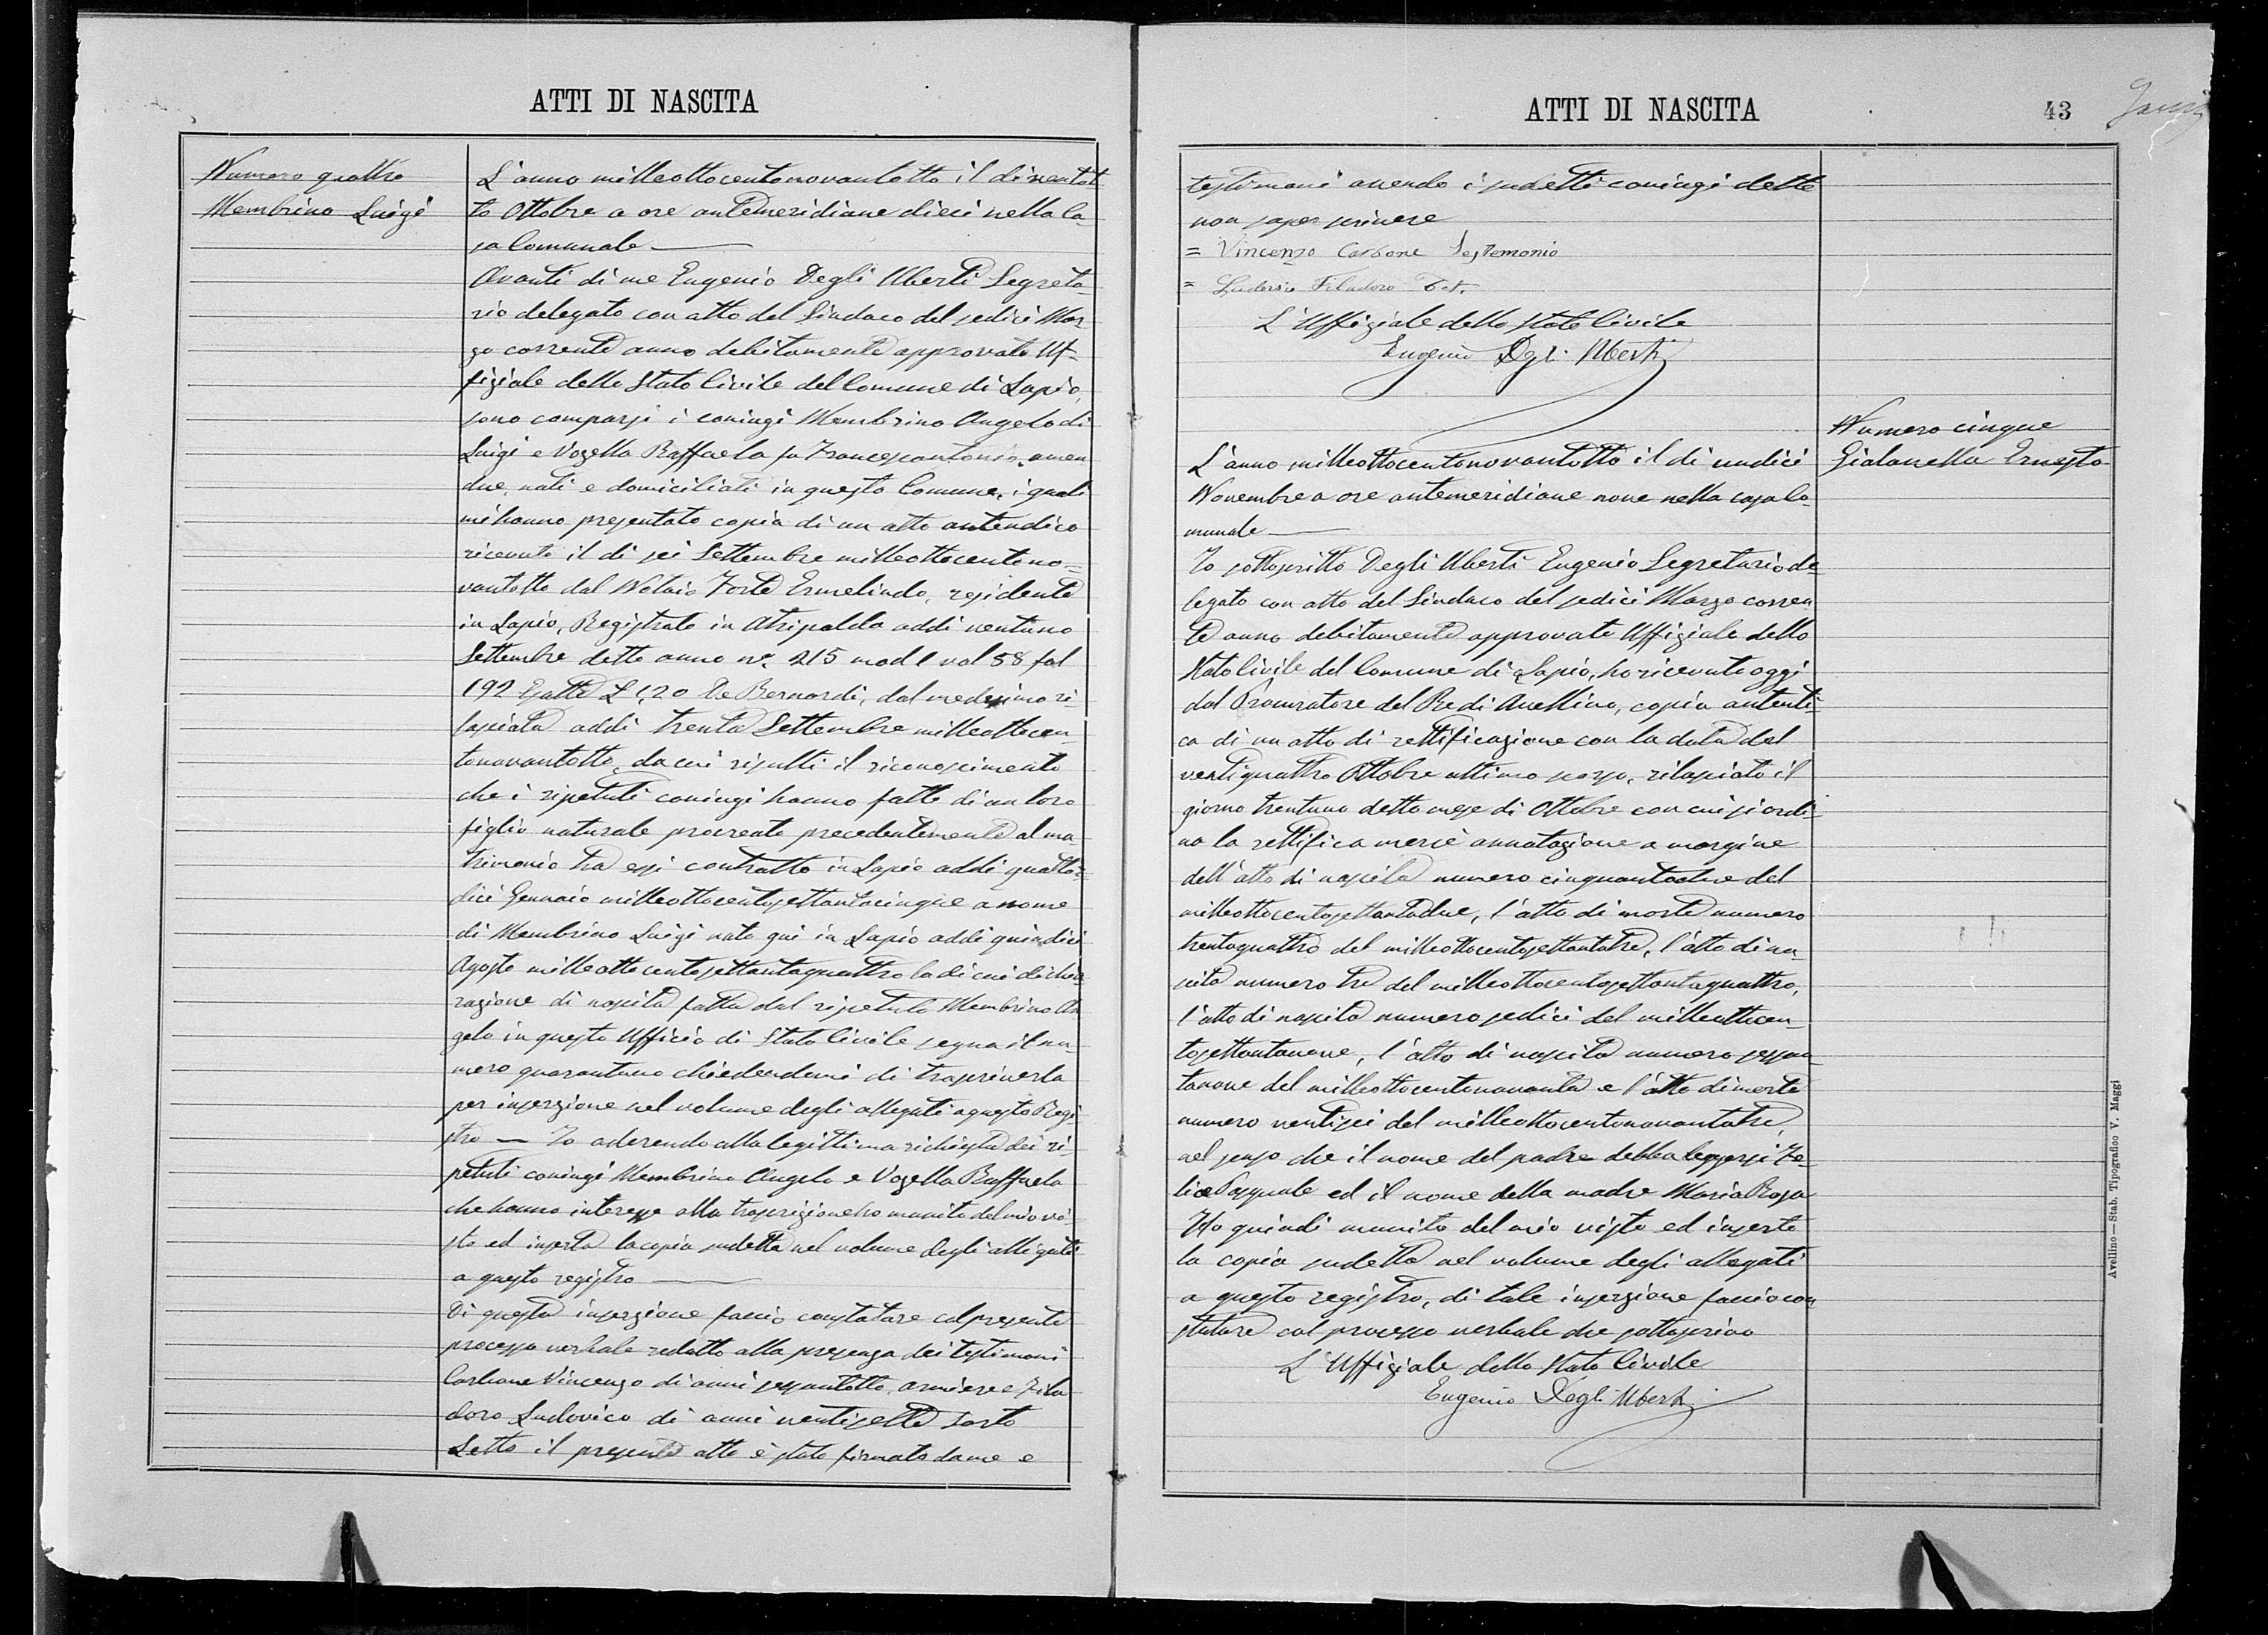 ATTI DI NASCITA
Numero quattro
Membrino Luigi
L'anno milleottocentonovantotto il dì ventot
to Ottobre a ore antemeridiane dieci nella Ca-
sa Comunale
Avanti di me Eugenio Degli Uberti Segreta-
rio delegato con atto del Sindaco del sedici Mar
zo corrente anno debitamente approvato Uf-
fiziale dello Stato Civile del Comune di Lapio,
sono comparsi i coniugi Membrino Angelo di
Luigi e Vozella Raffaela fu Francescantonio, amen
due nati e domiciliati in questo Comune, i quali
mi hanno presentato copia di un atto autendico
ricevuto il dì sei Settembre milleottocentono-
vantotto dal Notaio Forte Ermelindo, residente
in Lapio, Registrato in Atripalda addì ventuno
Settembre detto anno n°. 215 mod 1 vol 58 fol
192 Esatte L 1,20 De Bernardi, dal medesimo ri
lasciata addì trenta Settembre milleottocen-
tonovantotto, da cui risulti il riconoscimento
che i ripetuti coniugi hanno fatto di un loro
figlio naturale procreato precedentemente al ma-
trimonio tra essi contratto in Lapio addì quattor-
dici Gennaio milleottocentosettantacinque a nome
di Membrino Luigi nato qui in Lapio addì quindici
Agosto milleottocentosettantaquattro la di cui dichia
razione di nascita fatta dal ripetuto Membrino An
gelo in questo Ufficio di Stato Civile segna il nu-
mero quarantuno chiedendomi di trascriverla
per inserzione nel volume degli allegati a questo Regi-
stro — Io aderendo alla legittima richiesta dei ri-
petuti coniugi Membrino Angelo e Vozella Raffaela
che hanno interesse alla trascrizione ho munito del mio vi-
sto ed inserta la copia sudetta nel volume degli alligati
a questo registro
Di questa inserzione faccio constatare col presente
processo verbale redatto alla presenza dei testimoni
Carbone Vincenzo di anni sessantotto, armiere e Fila
doro Ludovico di anni ventisette sarto
Letto il presente atto è stato firmato da me e
ATTI DI NASCITA
43
testimoni avendo i sudetti coniugi detto
non saper scrivere
= Vincenzo Carbone Testemonio
= Ludovico Filadoro Tet.
L'Uffiziale dello Stato Civile
Eugenio Degli Uberti
Numero cinque
Gialanella Ernesto
L'anno milleottocentonovantotto il dì undici
Novembre a ore antemeridiane nove nella casa Co-
munale
Io sottoscritto Degli Uberti Eugenio Segretario de-
legato con atto del Sindaco del sedici Marzo corren
te anno debitamente approvato Uffiziale dello
Stato Civile del Comune di Lapio, ho ricevuto oggi
dal Procuratore del Re di Avellino, copia autenti-
ca di un atto di rettificazione con la data del
ventiquattro Ottobre ultimo scorso, rilasciato il
giorno trentuno detto mese di Ottobre con cui si ordi-
na la rettifica mercè annotazione a margine
dell'atto di nascita numero cinquantadue del
milleottocentosettantadue, l'atto di morte numero
trentaquattro del milleottocentosettantatre, l'atto di na-
scita numero tre del milleottocentosettantaquattro,
l'atto di nascita numero sedici del milleottocen-
tosettantanove, l'atto di nascita numero sessan
tanove del milleottocentonovanta e l'atto di morte
numero ventisei del milleottocentonovantatre,
nel senso che il nome del padre debba leggersi Fe-
lice Pasquale ed il nome della madre Maria Rosa
Ho quindi munito del mio visto ed inserto
la copia sudetta nel volume degli allegati
a questo registro, di tale inserzione faccio con
statare col processo verbale che sottoscrivo
L'Uffiziale dello Stato Civile
Eugenio Degli Uberti
Avellino — Stab. Tipografico V. Maggi